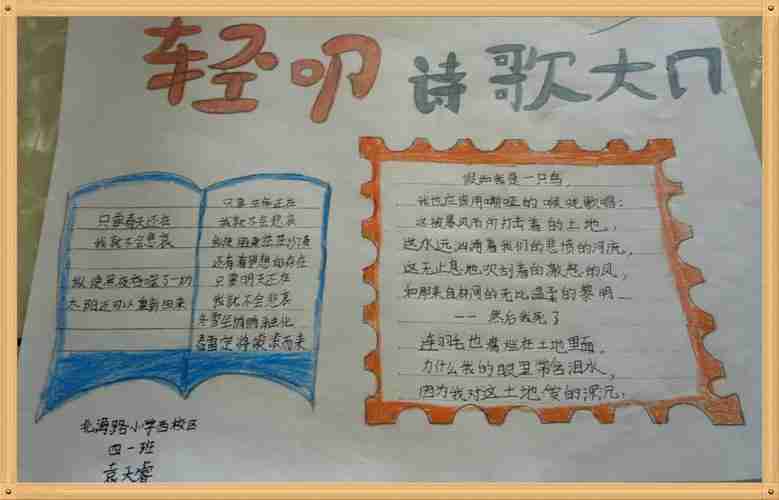 轻叩诗歌大门
只要春天还在
我就不会悲哀
纵使黑夜吞噬了一切
太阳还可以重新回来
只要生命还在
我就不会悲哀
纵使陷身茫茫沙漠
还有希望的存在
只要明天还在
我就不会悲哀
冬雪终会悄悄溶化
春雷定将滚滚而来
假如我是一只鸟，
我也应该用嘶哑的喉咙歌唱：
这被暴风雨所打击着的土地，
这永远汹涌着我们的悲愤的河流，
这无止息地吹刮着的激怒的风，
和那来自林间的无比温柔的黎明
——然后我死了
连羽毛也腐烂在土地里面。
为什么我的眼里常含泪水，
因为我对这土地
北海路小学西校区
四一班
袁天睿